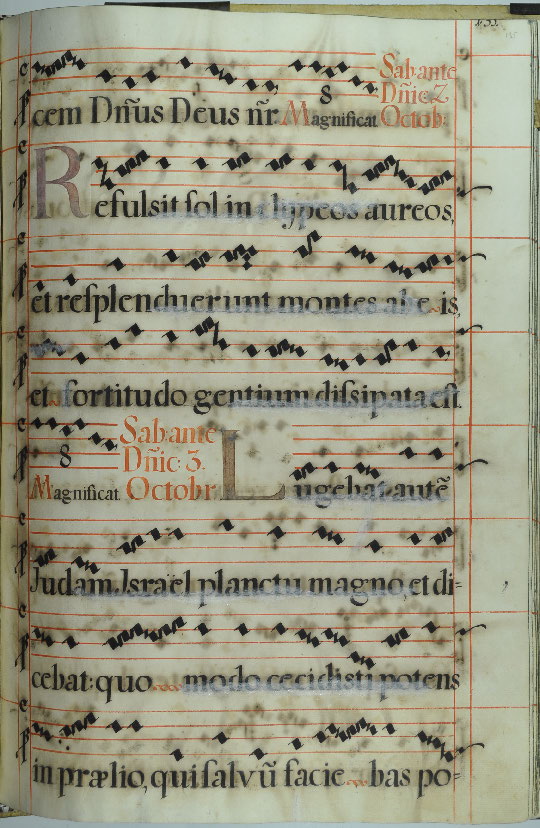 cem Dn̄us Deus nr̄. Magnificat 8 Sab. ante Dn̄ic. 2. Octob.
Refulsit sol in clypeos aureos,
et resplenduerunt montes ab e is,
et fortitudo gentium dissipata est.
Magnificat 8 Sab. ante Dn̄ic. 3. Octobr. Lugebat autē
Judam Israel planctu magno, et di=
cebat: quo modo cecidisti potens
in prælio, qui salvū facie bas po=